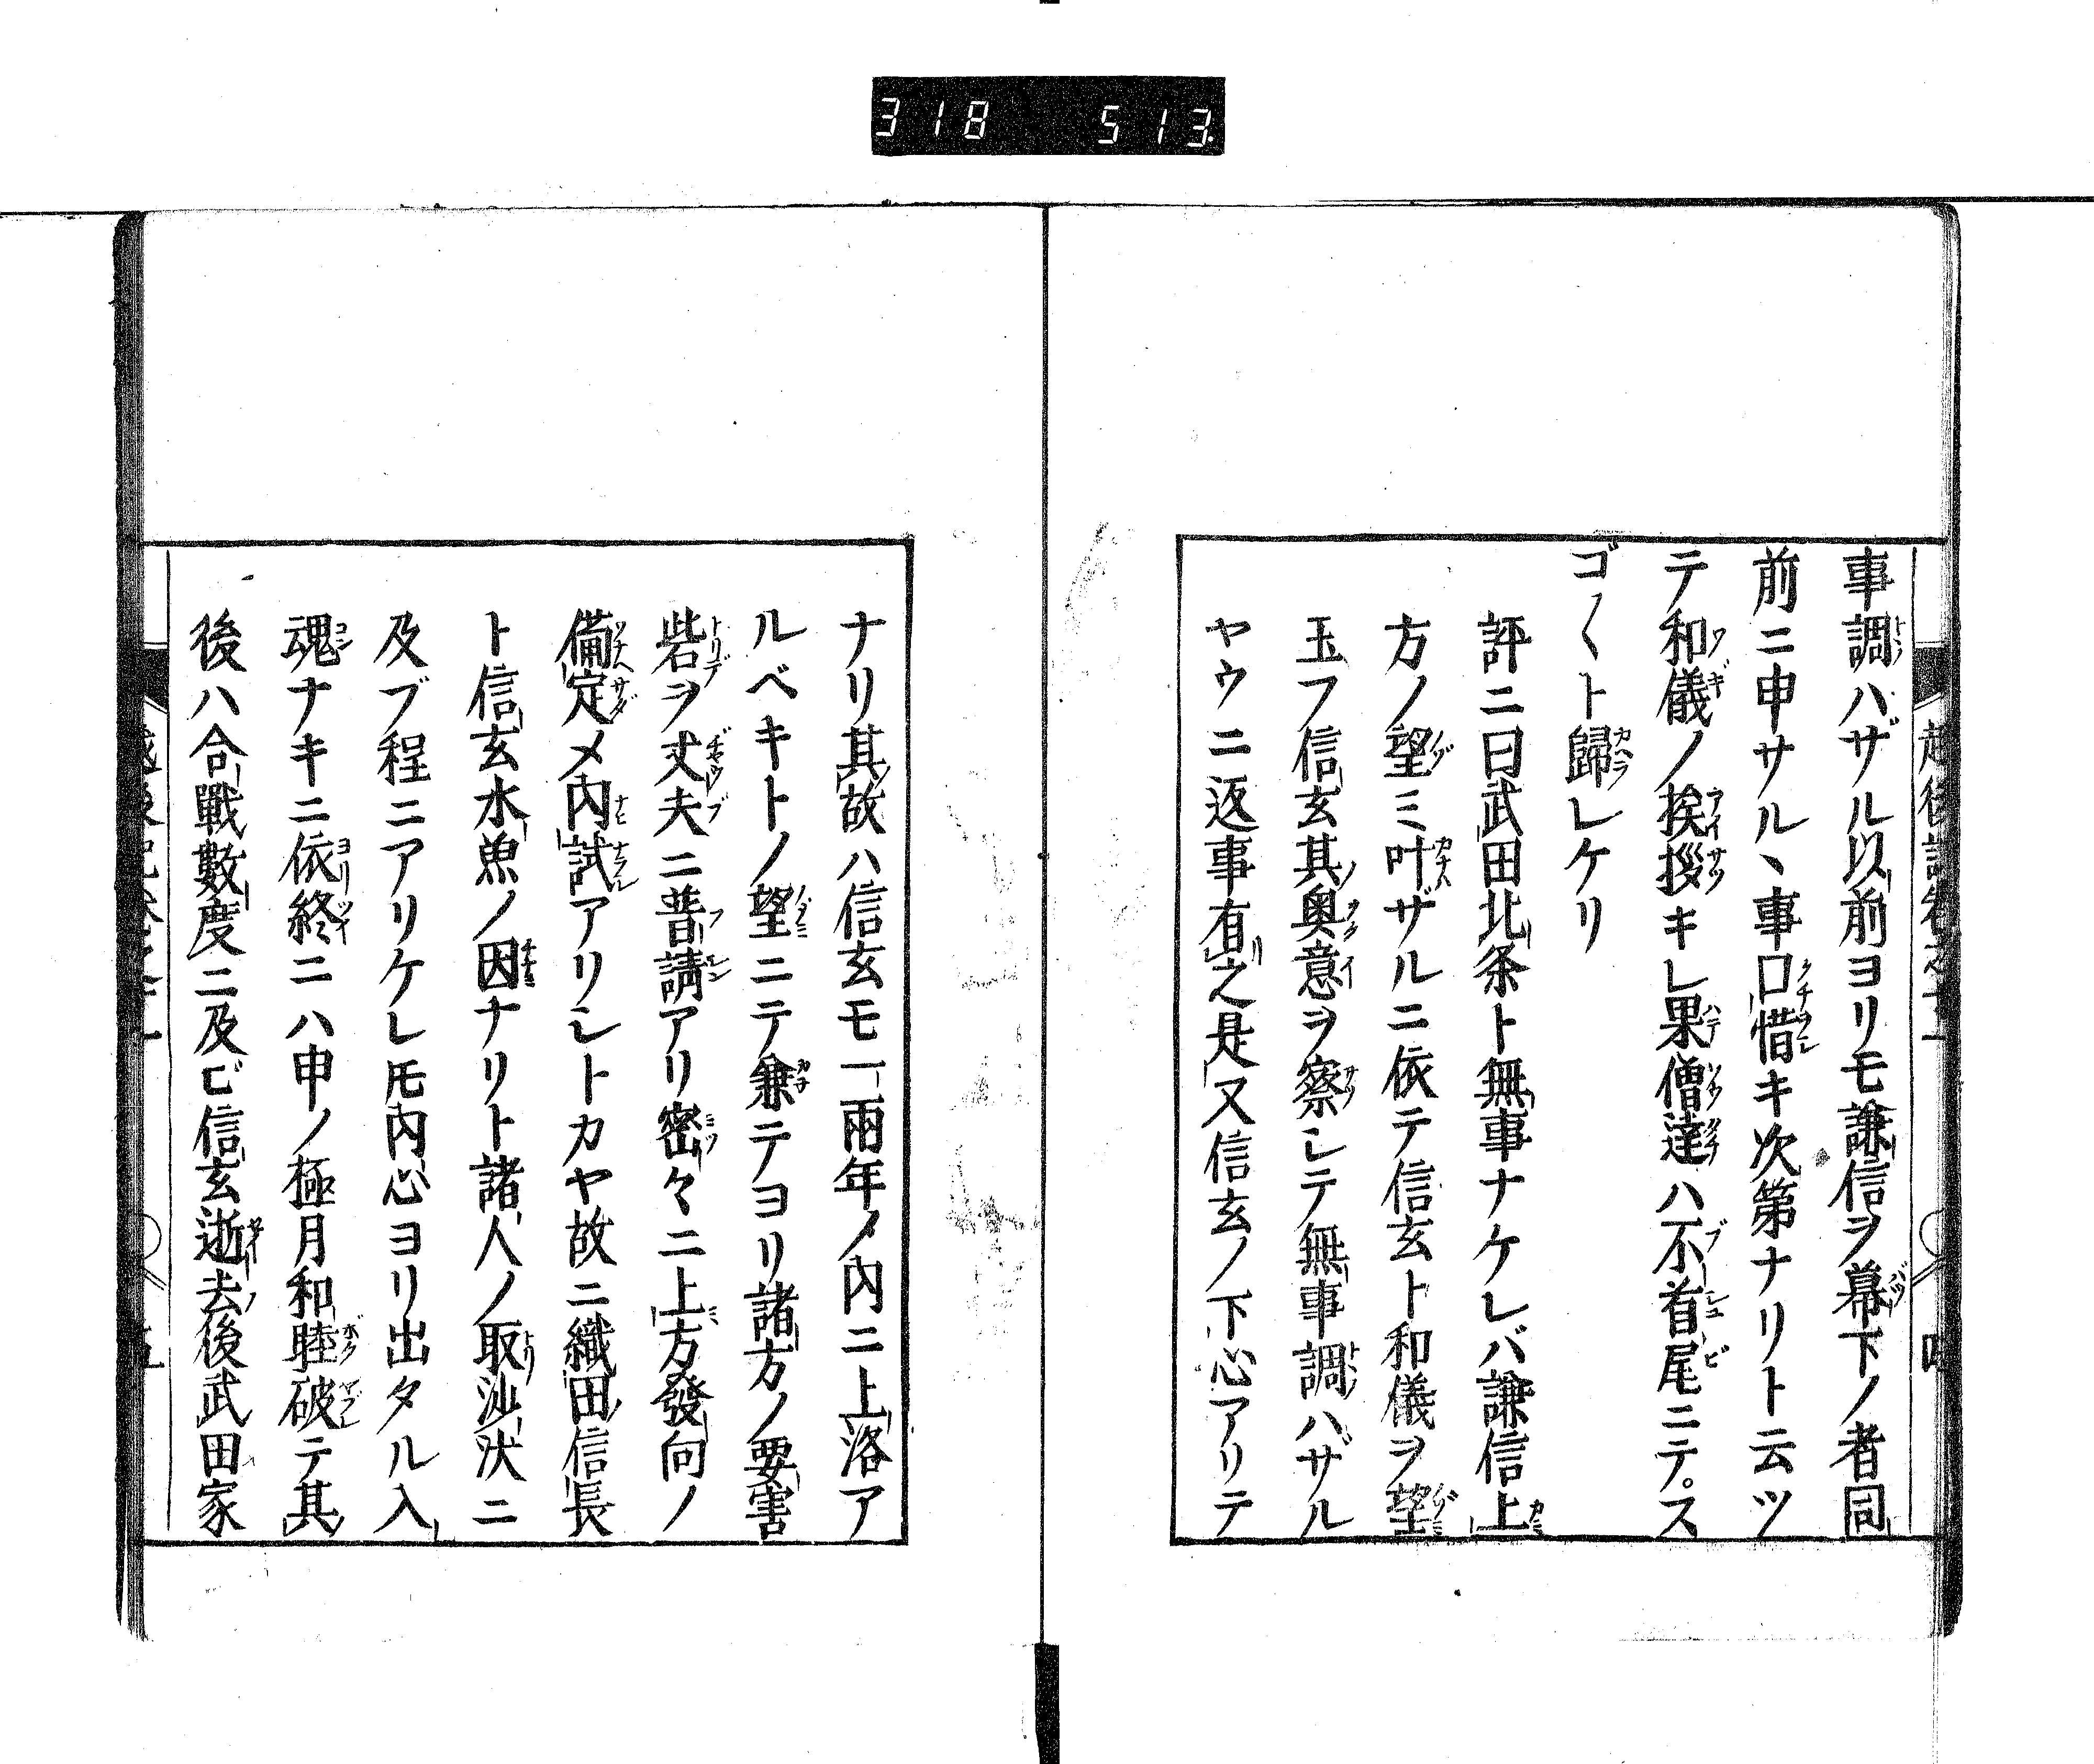 318 513
事調ハザル以前ヨリモ謙信ヲ幕下ノ者同
前ニ申サルヽ事口惜キ次第ナリト云ツ
テ和儀ノ挨拶キレ果僧達ハ不首尾ニテ。ス
ゴ〱ト歸レケリ
評ニ曰武田北条ト無事ナケレバ謙信上
方ノ望ミ叶ザルニ依テ信玄ト和儀ヲ望
玉フ信玄其奥意ヲ察シテ無事調ハザル
ヤウニ返事有之是又信玄ノ下心アリテ
ナリ其故ハ信玄モ一兩年ノ内ニ上洛ア
ルベキトノ望ニテ兼テヨリ諸方ノ要害
砦ヲ丈夫ニ普請アリ密々ニ上方發向ノ
備定メ内試アリシトカヤ故ニ織田信長
ト信玄水魚ノ因ナリト諸人ノ取沙汰ニ
及ブ程ニアリケレ𪜈内心ヨリ出タル入
魂ナキニ依終ニハ申ノ極月和睦破テ其
後ハ合戰數度ニ及ビ信玄逝去後武田家